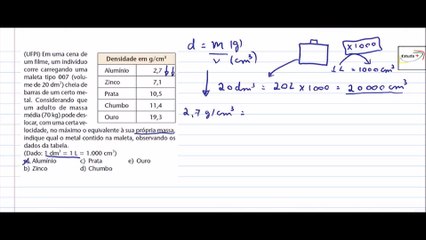 (UFPI) Em uma cena de
um filme, um indivíduo
corre carregando uma
maleta tipo 007 (volu-
me de 20 dm³) cheia de
barras de um certo me-
tal. Considerando que
um adulto de massa
média (70 kg) pode des-
locar, com uma certa ve-
locidade, no máximo o equivalente à sua própria massa,
indique qual o metal contido na maleta, observando os
dados da tabela.
(Dado: 1 dm³ = 1 L = 1.000 cm³)
a) Alumínio c) Prata e) Ouro
b) Zinco d) Chumbo
Densidade em g/cm³
Alumínio 2,7
Zinco 7,1
Prata 10,5
Chumbo 11,4
Ouro 19,3
d = m (g)
v (cm³)
x1000
1L = 1000 cm³
20 dm³ = 20L x 1000 = 20 000 cm³
2,7 g/cm³ =